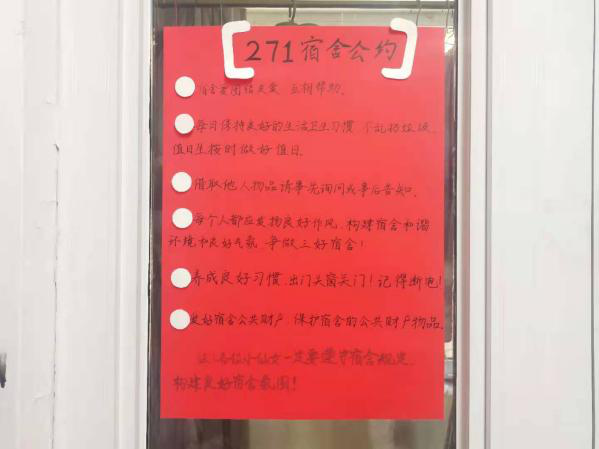 271宿舍公约
宿舍要团结友爱、互相帮助。
每日保持良好的生活卫生习惯、不乱扔垃圾、
值日生按时做好值日。
借取他人物品请事先询问或事后告知。
每个人都应发扬良好作风、构建宿舍和谐
环境和良好气氛、争做三好宿舍!
养成良好习惯、出门关窗关门!记得断电!
爱好宿舍公共财产、保护宿舍的公共财产物品。
各位小仙女一定要遵守宿舍规定、
构建良好宿舍氛围!